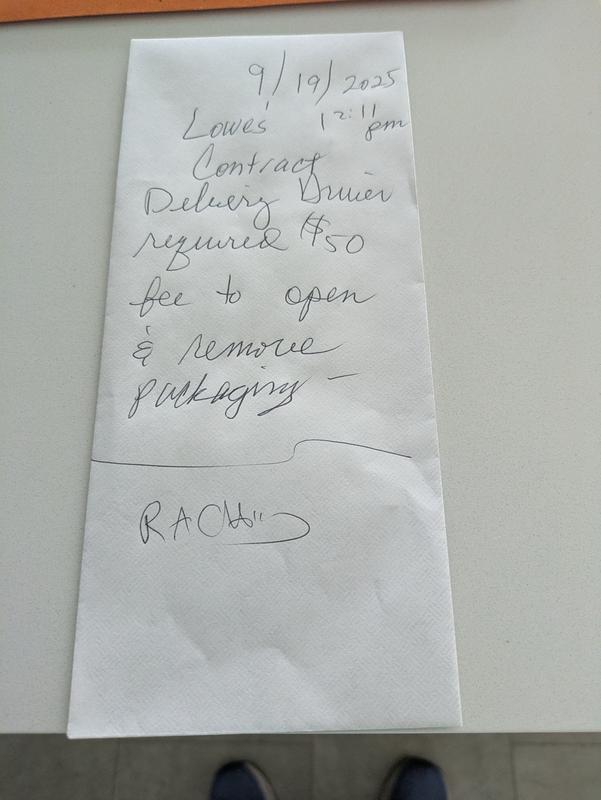 9/19/2025
Lowe's 12:11 pm
Contract
Delivery Driver
required $50
fee to open
& remove
packaging –